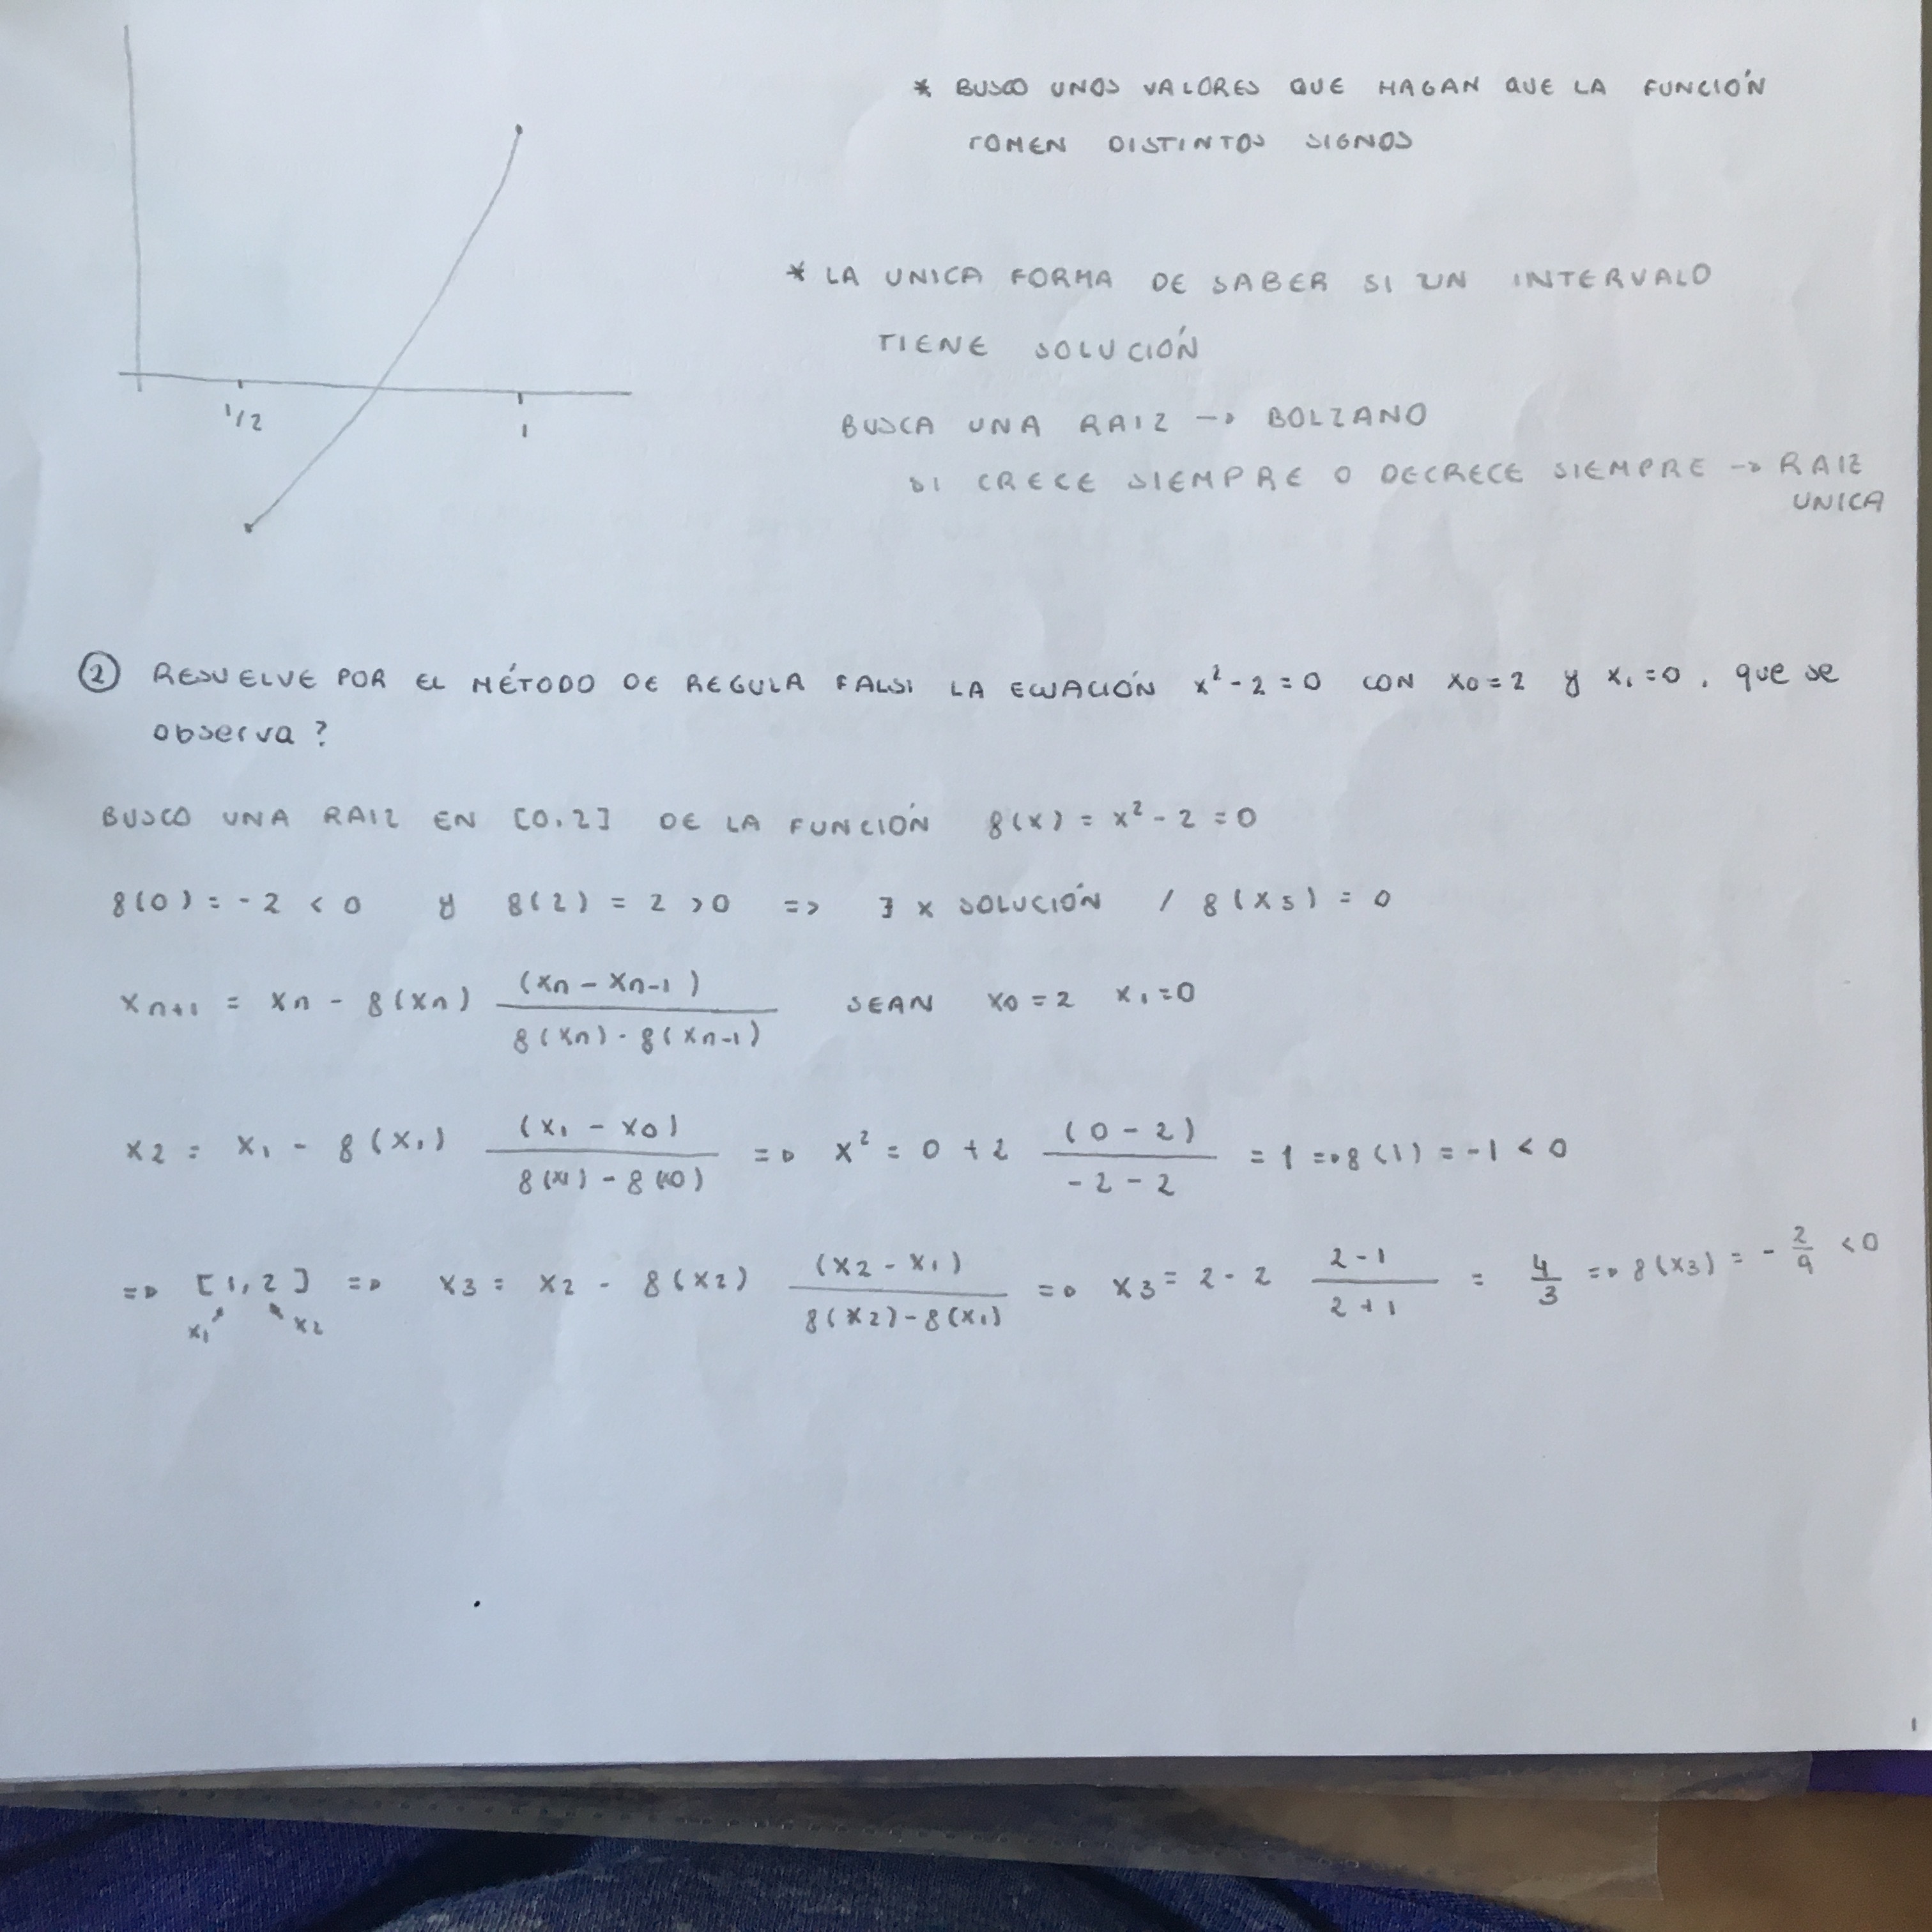 * BUSCO UNOS VALORES QUE HAGAN QUE LA FUNCIÓN
TOMEN DISTINTOS SIGNOS
* LA UNICA FORMA DE SABER SI UN INTERVALO
TIENE SOLUCIÓN
BUSCA UNA RAIZ -> BOLZANO
SI CRECE SIEMPRE O DECRECE SIEMPRE -> RAIZ
UNICA
1/2
1
② RESUELVE POR EL MÉTODO DE REGULA FALSI LA ECUACIÓN x² - 2 = 0 CON x0 = 2 y x1 = 0. que se
observa?
BUSCO UNA RAIZ EN [0,2] DE LA FUNCIÓN f(x) = x² - 2 = 0
f(0) = -2 < 0 y f(2) = 2 > 0 => ∃ x SOLUCIÓN / f(xs) = 0
xn+1 = xn - f(xn) (xn - xn-1) / f(xn) - f(xn-1) SEAN x0 = 2 x1 = 0
x2 = x1 - f(x1) (x1 - x0) / f(x1) - f(x0) => x² = 0 + 2 (0 - 2) / -2 - 2 = 1 => f(1) = -1 < 0
=> [1, 2] => x3 = x2 - f(x2) (x2 - x1) / f(x2) - f(x1) => x3 = 2 - 2 2 - 1 / 2 + 1 = 4/3 => f(x3) = - 2/9 < 0
x1 x2